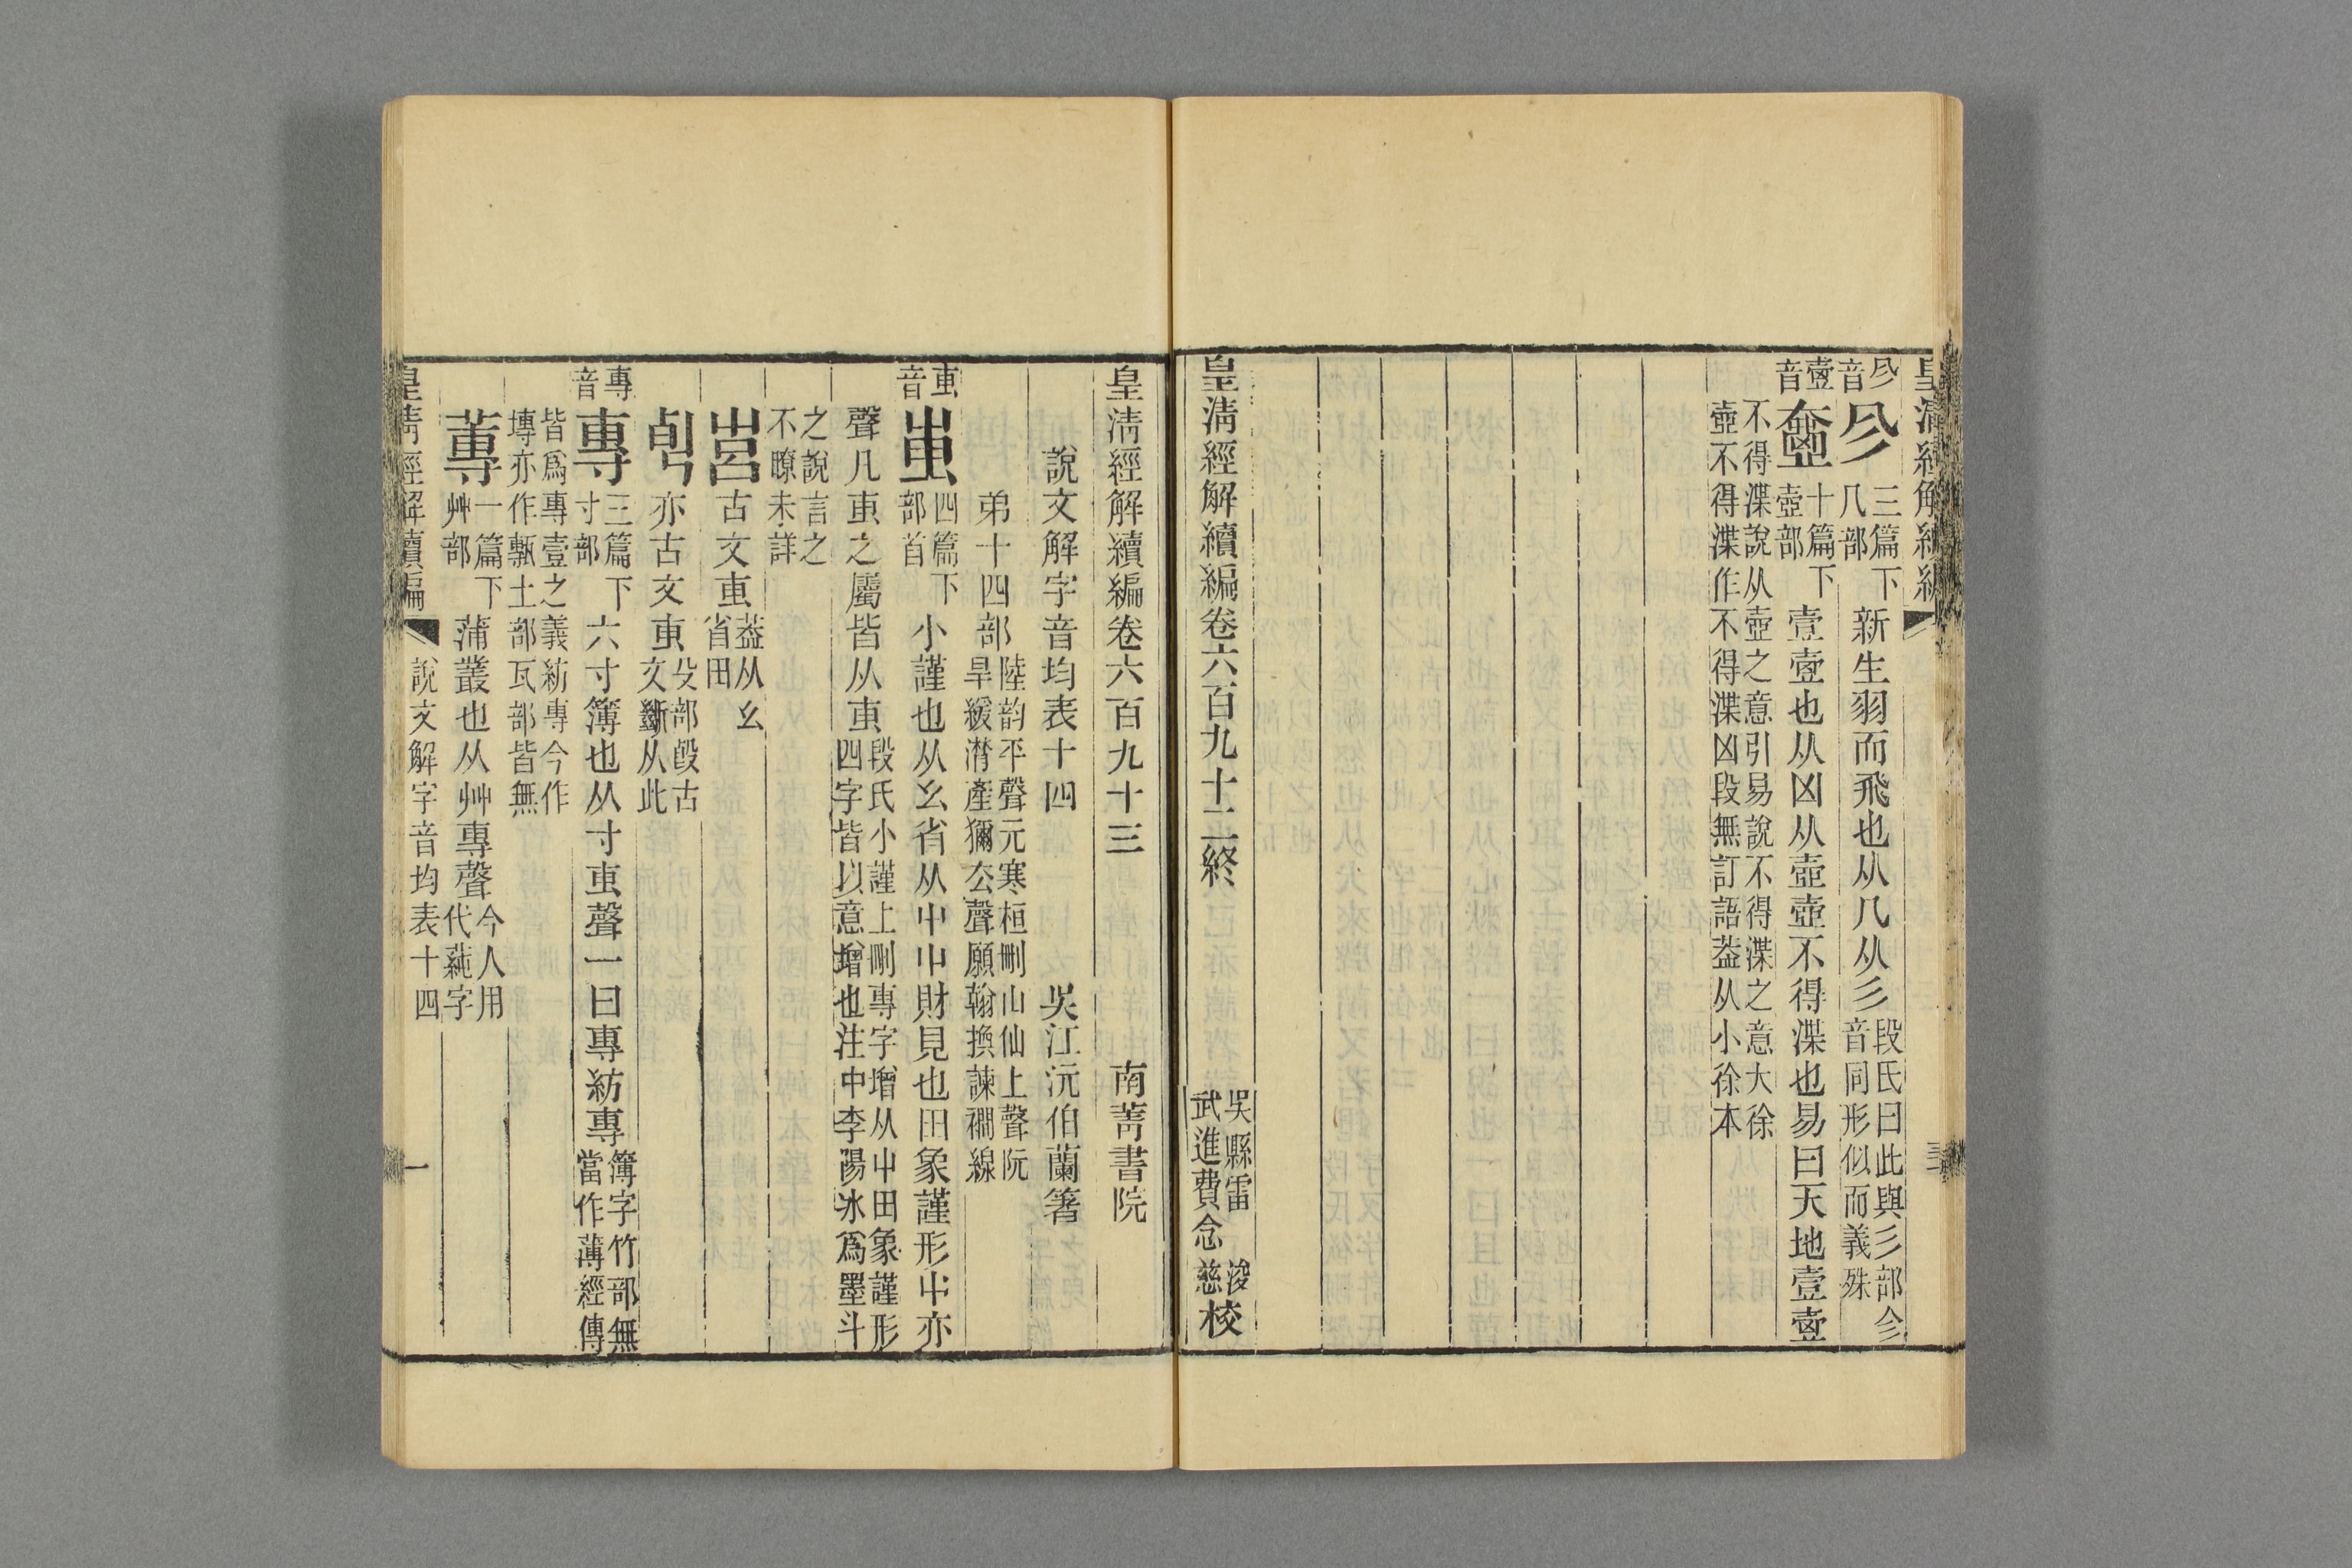 皇清經解續編
㐱音
三篇下
几部
新生羽而飛也从几从彡
段氏曰此與彡部㐱
音同形似而義殊
壹音
十篇下
壺部
壹壹也从凶从壺壺不得渫也易曰天地壹壹
不得渫說从壺之意引易說不得渫之意大徐
壺不得渫作不得渫凶段無訂語葢从小徐本
皇清經解續編卷六百九十二終
吳縣雷浚
武進費念慈
校
皇清經解續編卷六百九十三
南菁書院
說文解字音均表十四
吳江沅伯蘭箸
弟十四部
陸韵平聲元寒桓刪山仙上聲阮
旱緩潸產獮厺聲願翰換諫襉線
叀音
叀
四篇下
部首
小謹也从幺省从屮屮財見也田象謹形屮亦
聲凡叀之屬皆从叀
段氏小謹上刪專字增从屮田象謹形
四字皆以意增也注中李陽冰爲墨斗
之說言之
不瞭未詳
古文叀
葢从幺
省田
亦古文叀
殳部𣪘古
文斷从此
專音
專
三篇下
寸部
六寸簿也从寸叀聲一曰專紡專
簿字竹部無
當作薄經傳
皆爲專壹之義紡專今作
塼亦作甎土部瓦部皆無
蓴
一篇下
艸部
蒲叢也从艸專聲
今人用
代蒓字
皇清經解續編
說文解字音均表十四
一